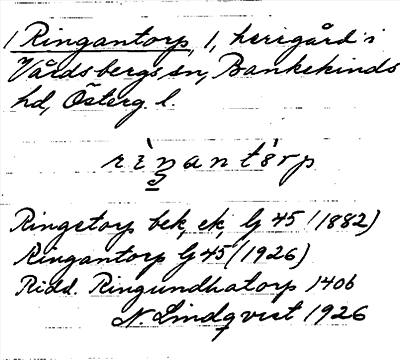 1 Ringantorp, 1, herrgård i
Vårdsbergs sn, Bankekinds
hd, Österg. l.
rìŋantòrp
Ringstorp bek, ek, Gj 45 (1882)
Ringantorp Gj 45 (1926)
Ridd. Ringundhatorp 1406
N Lindqvist 1926